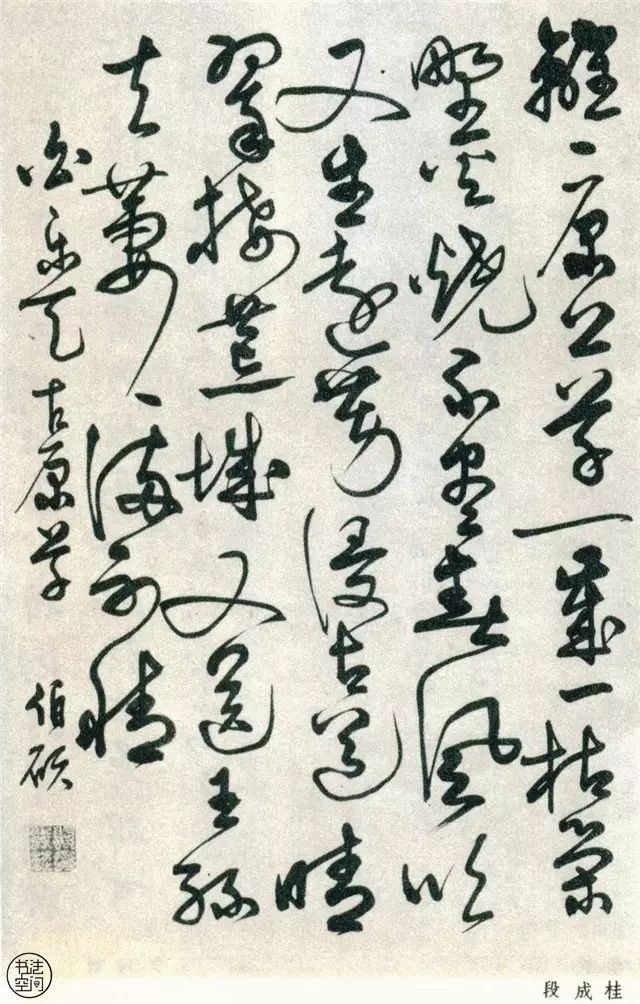 離〻原上草一歲一枯榮
野火燒不盡春風吹
又生遠芳侵古道晴
翠接荒城又送王孫
去萋〻滿別情
白樂天古原草 伯碩
段成桂
书法
空间